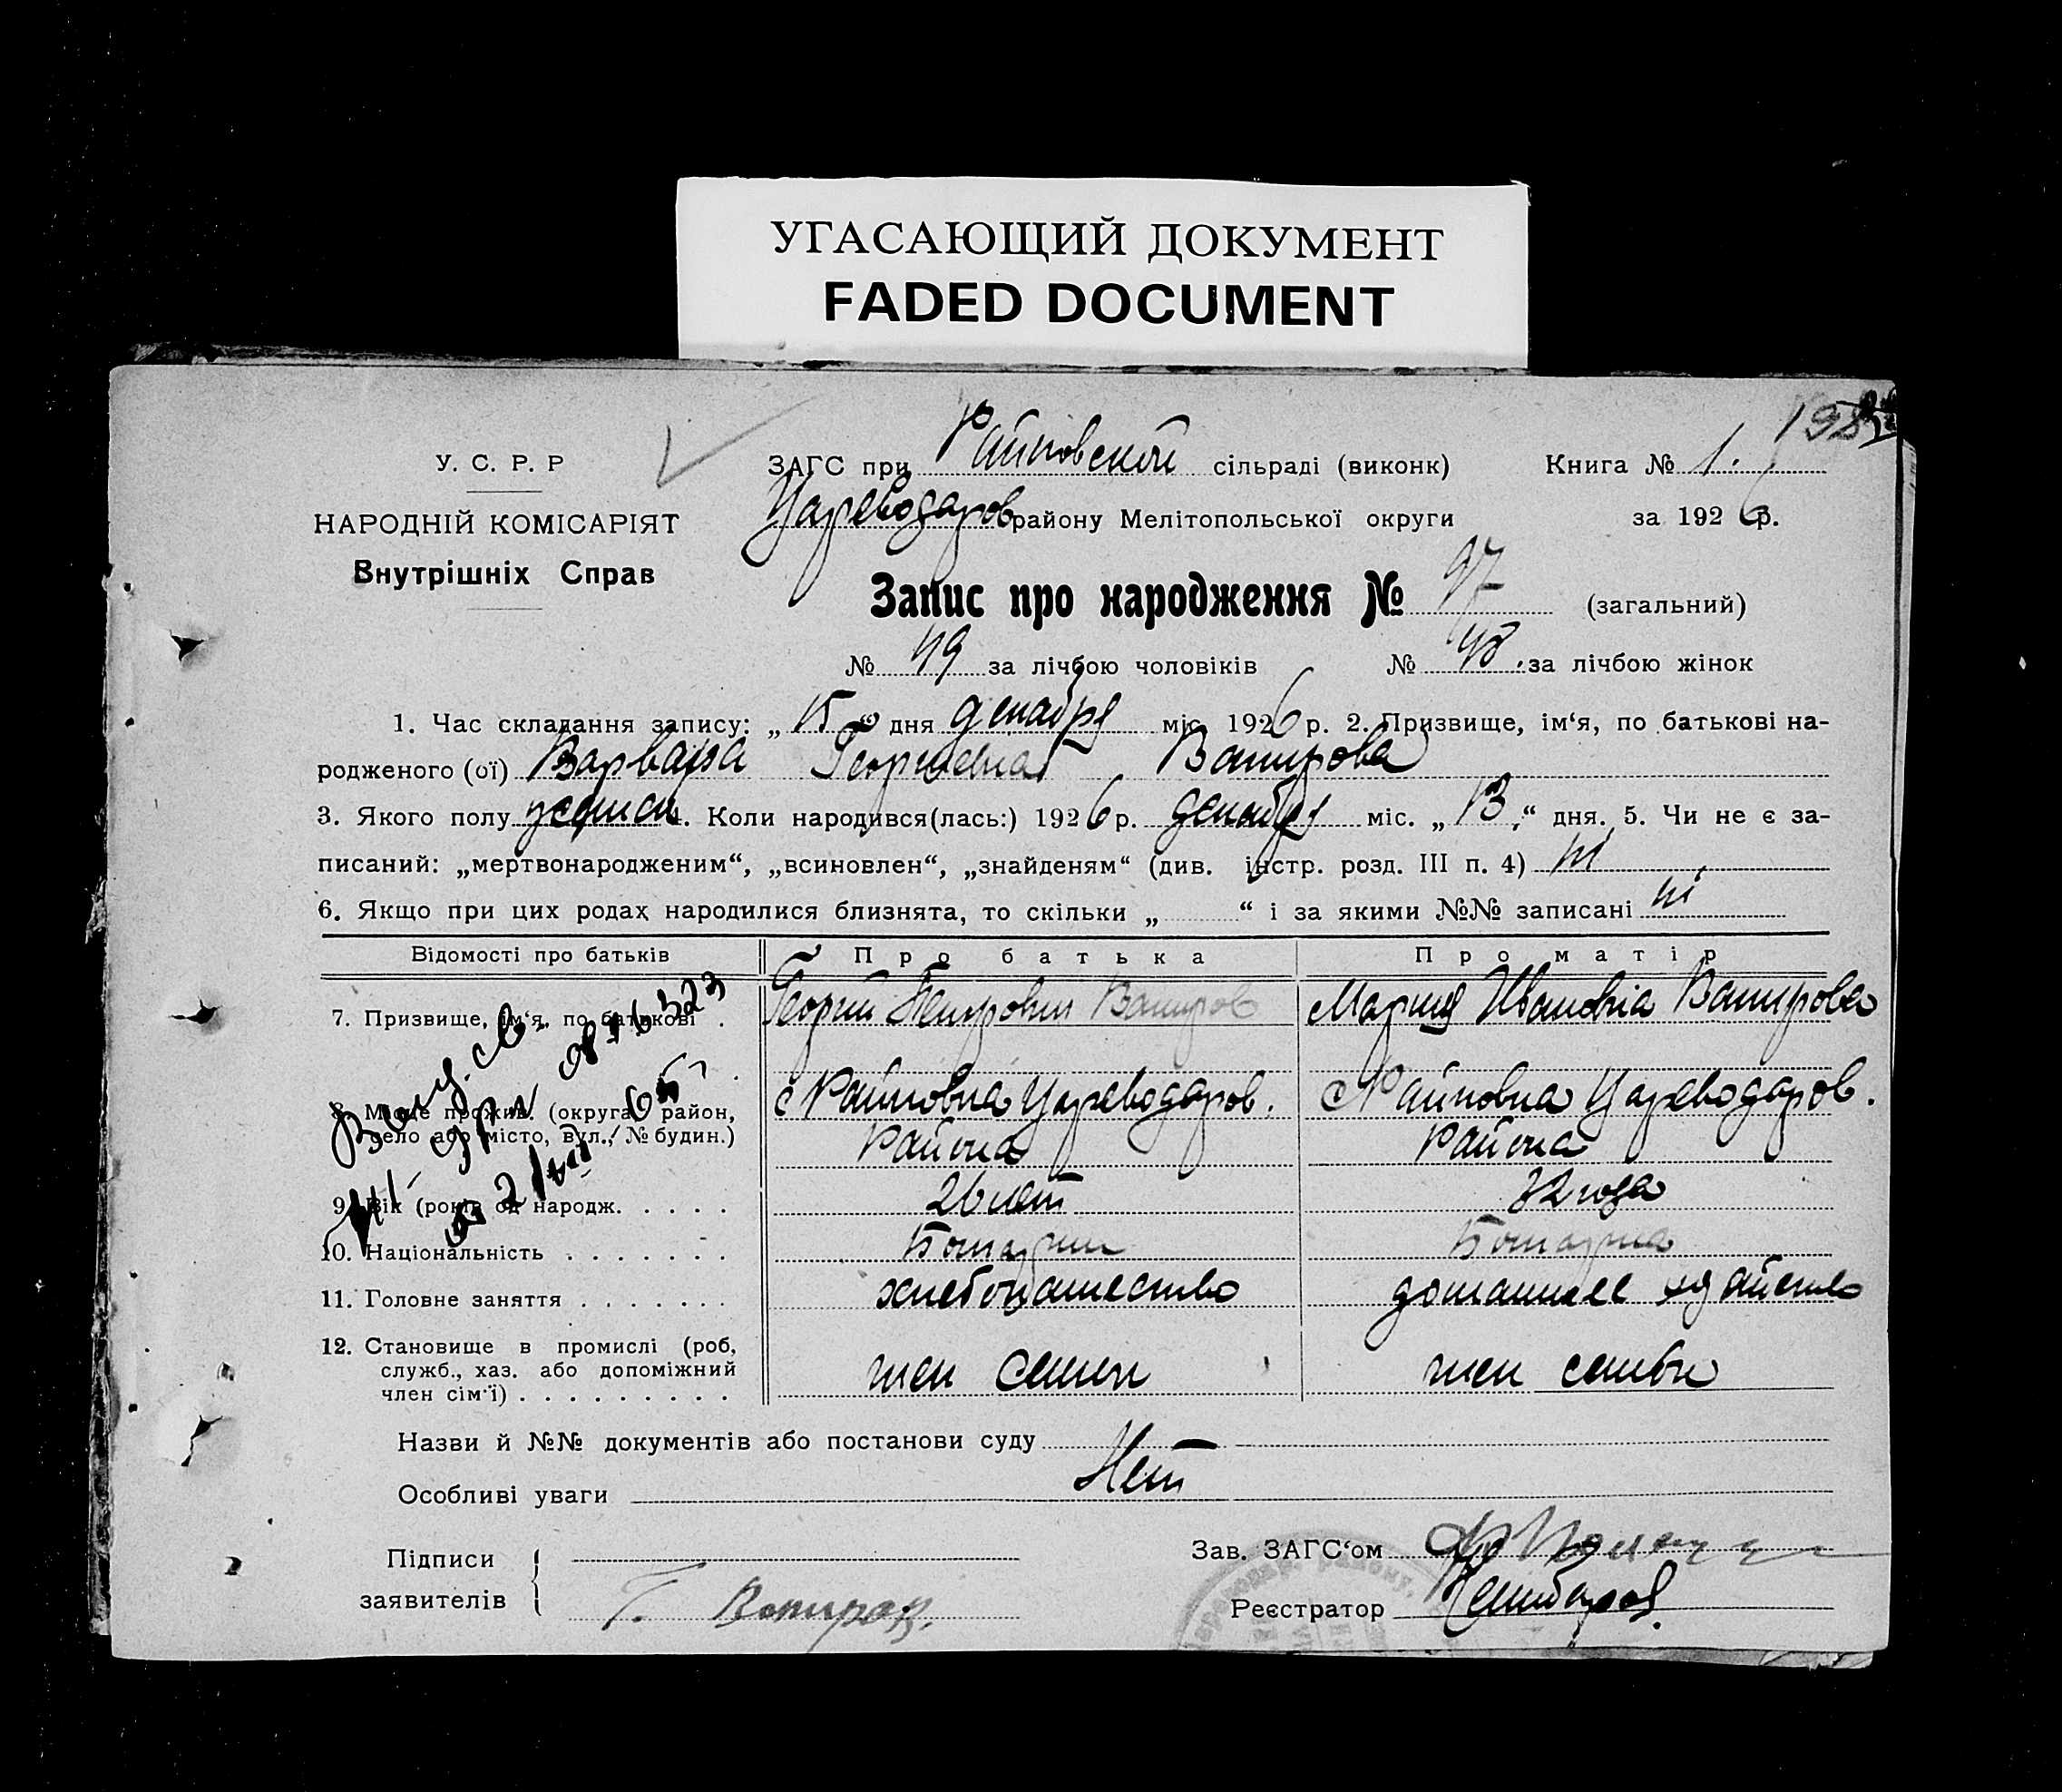 УГАСАЮЩИЙ ДОКУМЕНТ
FADED DOCUMENT
У. С. Р. Р
НАРОДНІЙ КОМІСАРІЯТ
Внутрішніх Справ
ЗАГС при Райновской сільраді (виконк)
Книга № 1.
Цареводаров району Мелітопольської округи
за 1926 р.
Запис про народження № 97 (загальний)
№ 49 за лічбою чоловіків № 48. за лічбою жінок
1. Час складання запису: „15“ дня декабря міс. 1926 р. 2. Призвище, ім‘я, по батькові на-
родженого (ої) Варвара Георгиевна Вапирова
3. Якого полу женск 4. Коли народився(лась:) 1926 р. декабря міс. „13“ дня. 5. Чи не є за-
писаний: „мертвонародженим“, „всиновлен“, „знайденям“ (див. інстр. розд. III п. 4) ні
6. Якщо при цих родах народилися близнята, то скільки „ “ і за якими №№ записані ні
Відомості про батьків Про батька Про матір
7. Призвище, ім‘я, по батькові . Георгий Петрович Вапиров Мария Ивановна Вапирова
8. Місце прожив. (округа, район, с Райновка Цареводаров. с Райновка Цареводаров.
село або місто, вул., № будин.) Района Района
9. Вік (років од народж. . . . . . 26 лет 32 года
10. Національність . . . . . . . Болгарин Болгарка
11. Головне заняття . . . . . . . хлебопашество домашнее хозяйство
12. Становище в промислі (роб,
служб., хаз. або допоміжний член семьи член семьи
член сім‘ї) . . . . . . . . .
Назви й №№ документів або постанови суду
Нет
Особливі уваги
Підписи
заявителів
Г. Вапиров.
Зав. ЗАГС‘ом
Реєстратор